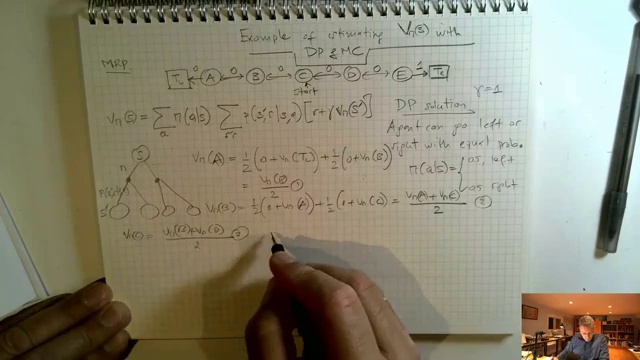 Example of estimating Vπ(s) with
DP & MC
MRP
T A 0 B 0 C 0 D 0 E 1 T
start
Vπ(s) = Σ_a π(a|s) Σ_s'r p(s',r|s,a) [r + γ Vπ(s')]
DP solution γ=1
Agent can go left or
right with equal prob.
π(a|s) = { 0.5, left
0.5 right
S
π
s'
Vπ(A) = 1/2 (0 + Vπ(TL)) + 1/2 (0 + Vπ(B))
= Vπ(B)/2 ①
Vπ(B) = 1/2 (0 + Vπ(A)) + 1/2 (0 + Vπ(C)) = Vπ(A) + Vπ(C) / 2 ②
Vπ(C) = Vπ(B) + Vπ(D) / 2 ③